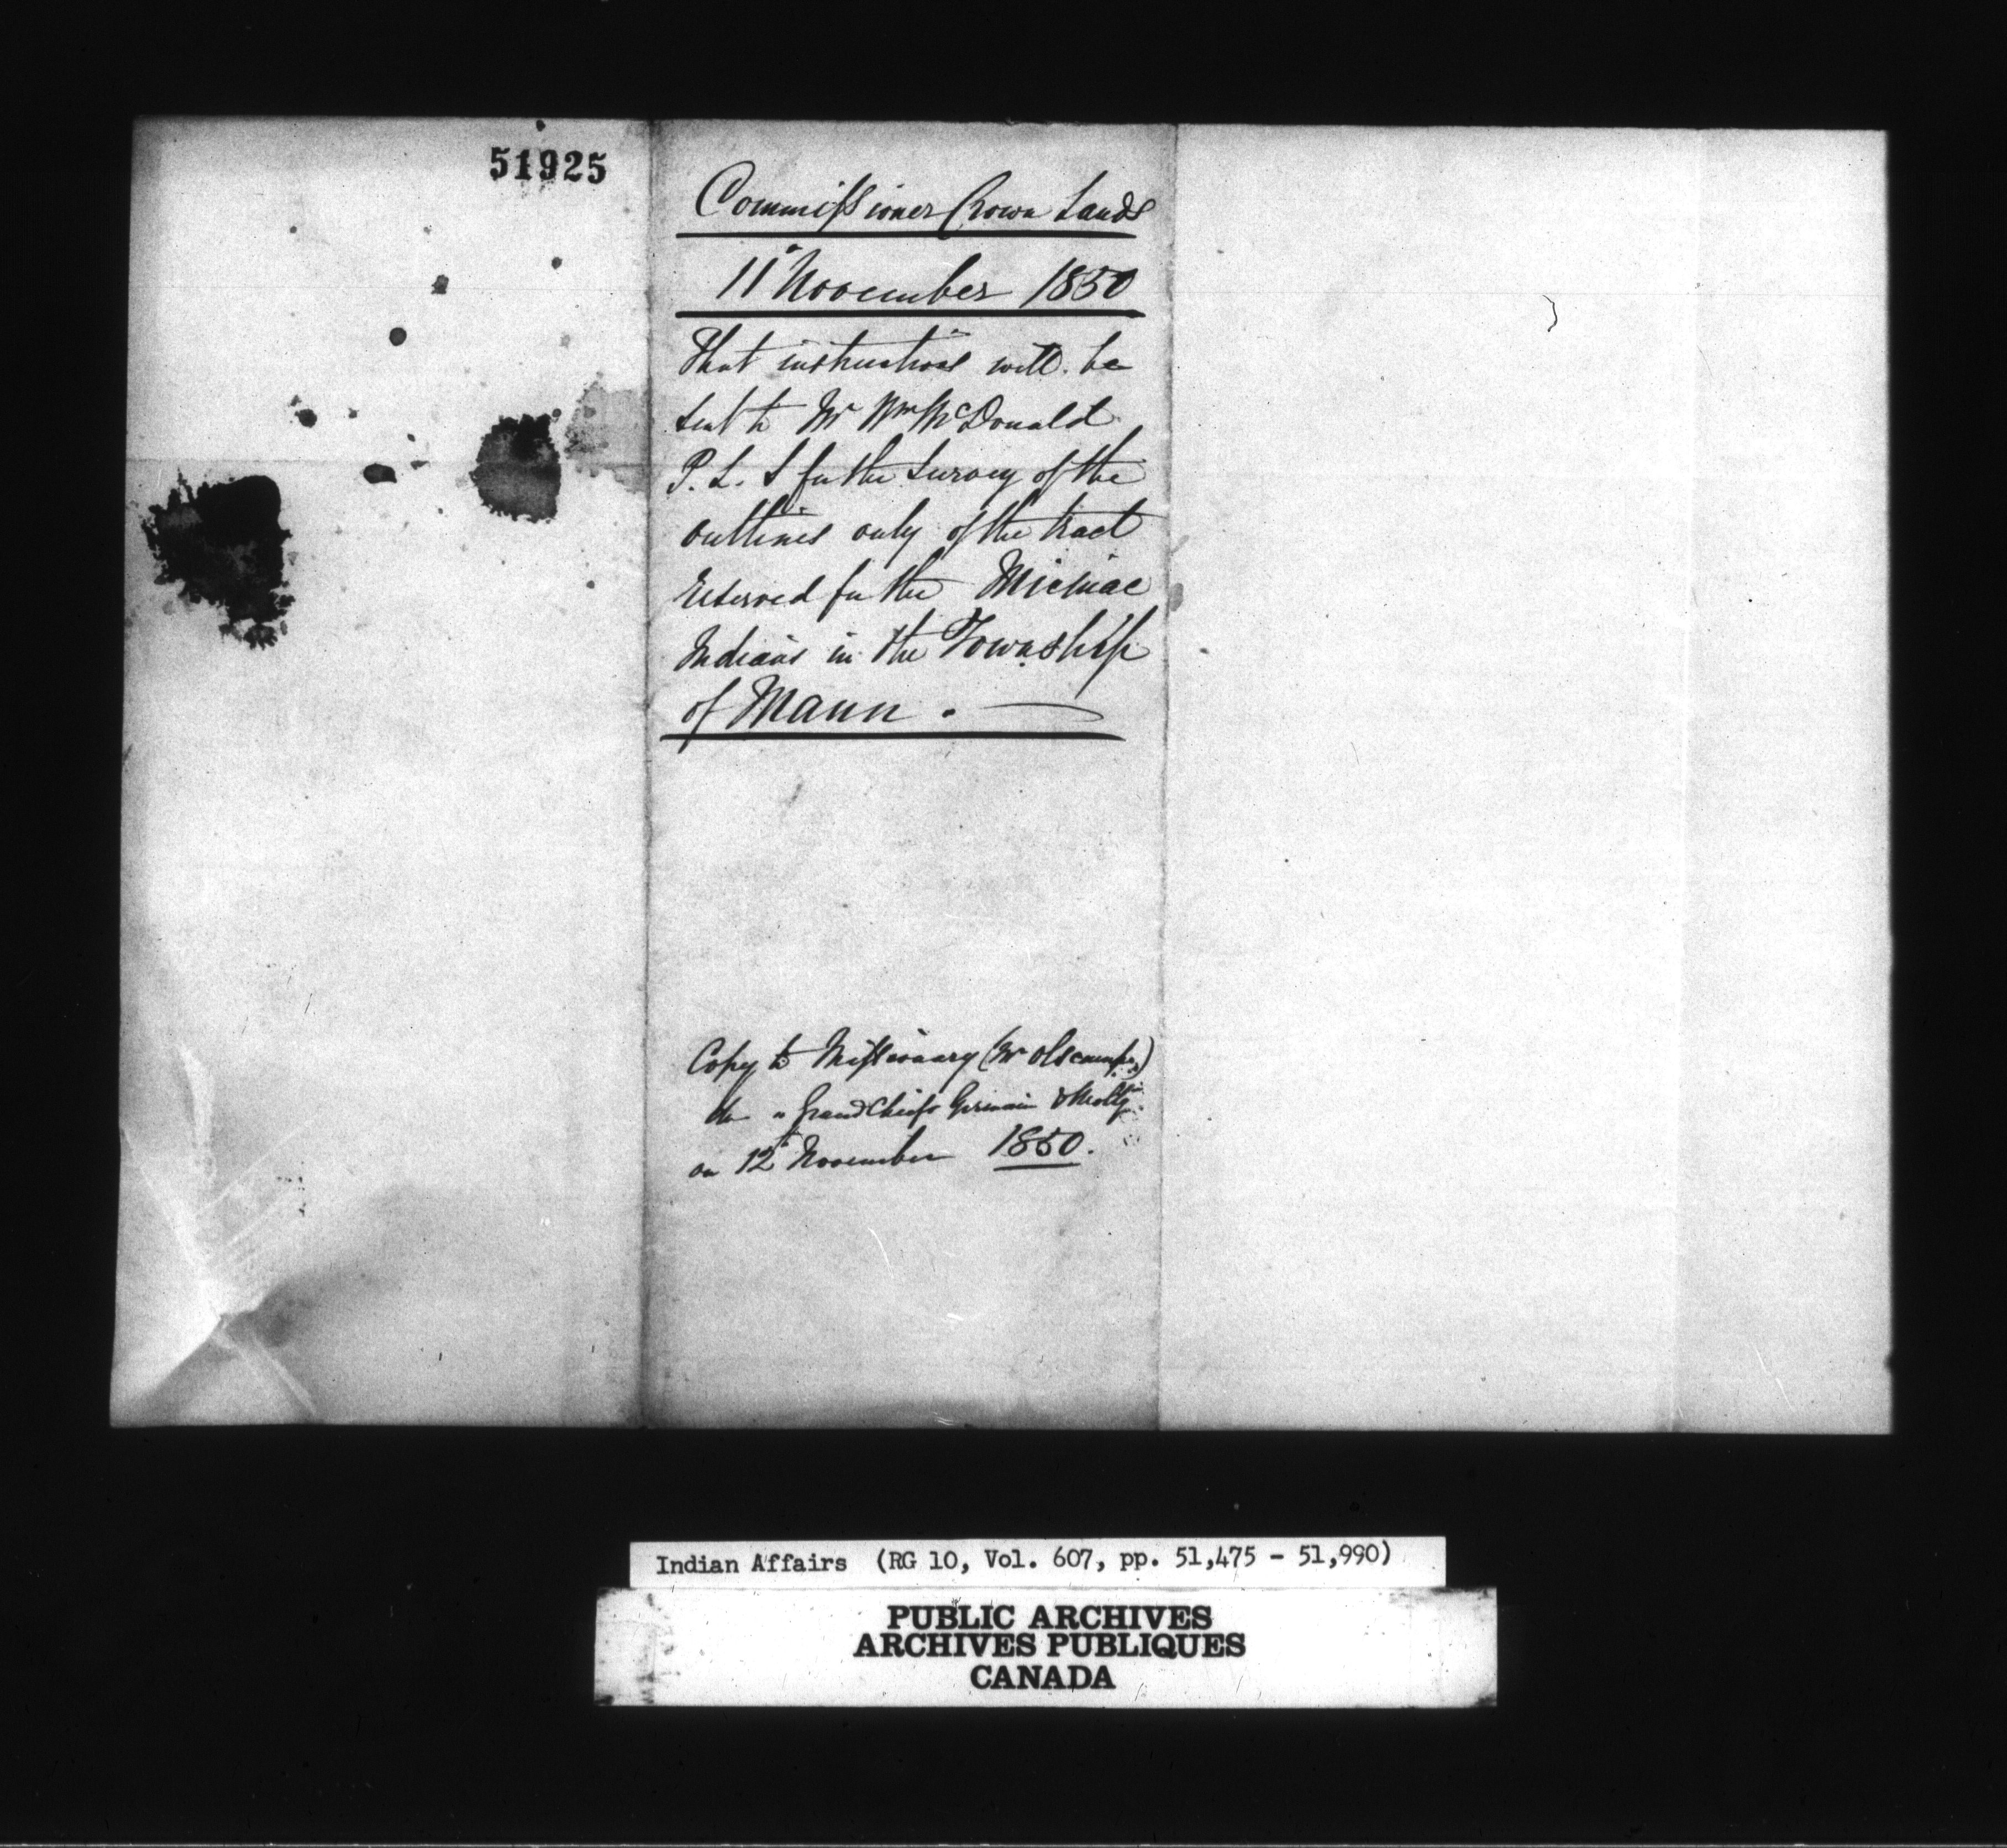 51925
Commissioner Crown Lands
11 November 1850
That instructions will be
sent to Mr Wm McDonald
P. L. S for the Survey of the
outlines only of the tract
reserved for the Micmac
Indians in the Township
of Mann . —
Copy to Missionary (Mr Olscamps)
do " Grand Chiefs Germain &
on 12 November 1850.
Indian Affairs (RG 10, Vol. 607, pp. 51,475 - 51,990)
PUBLIC ARCHIVES
ARCHIVES PUBLIQUES
CANADA